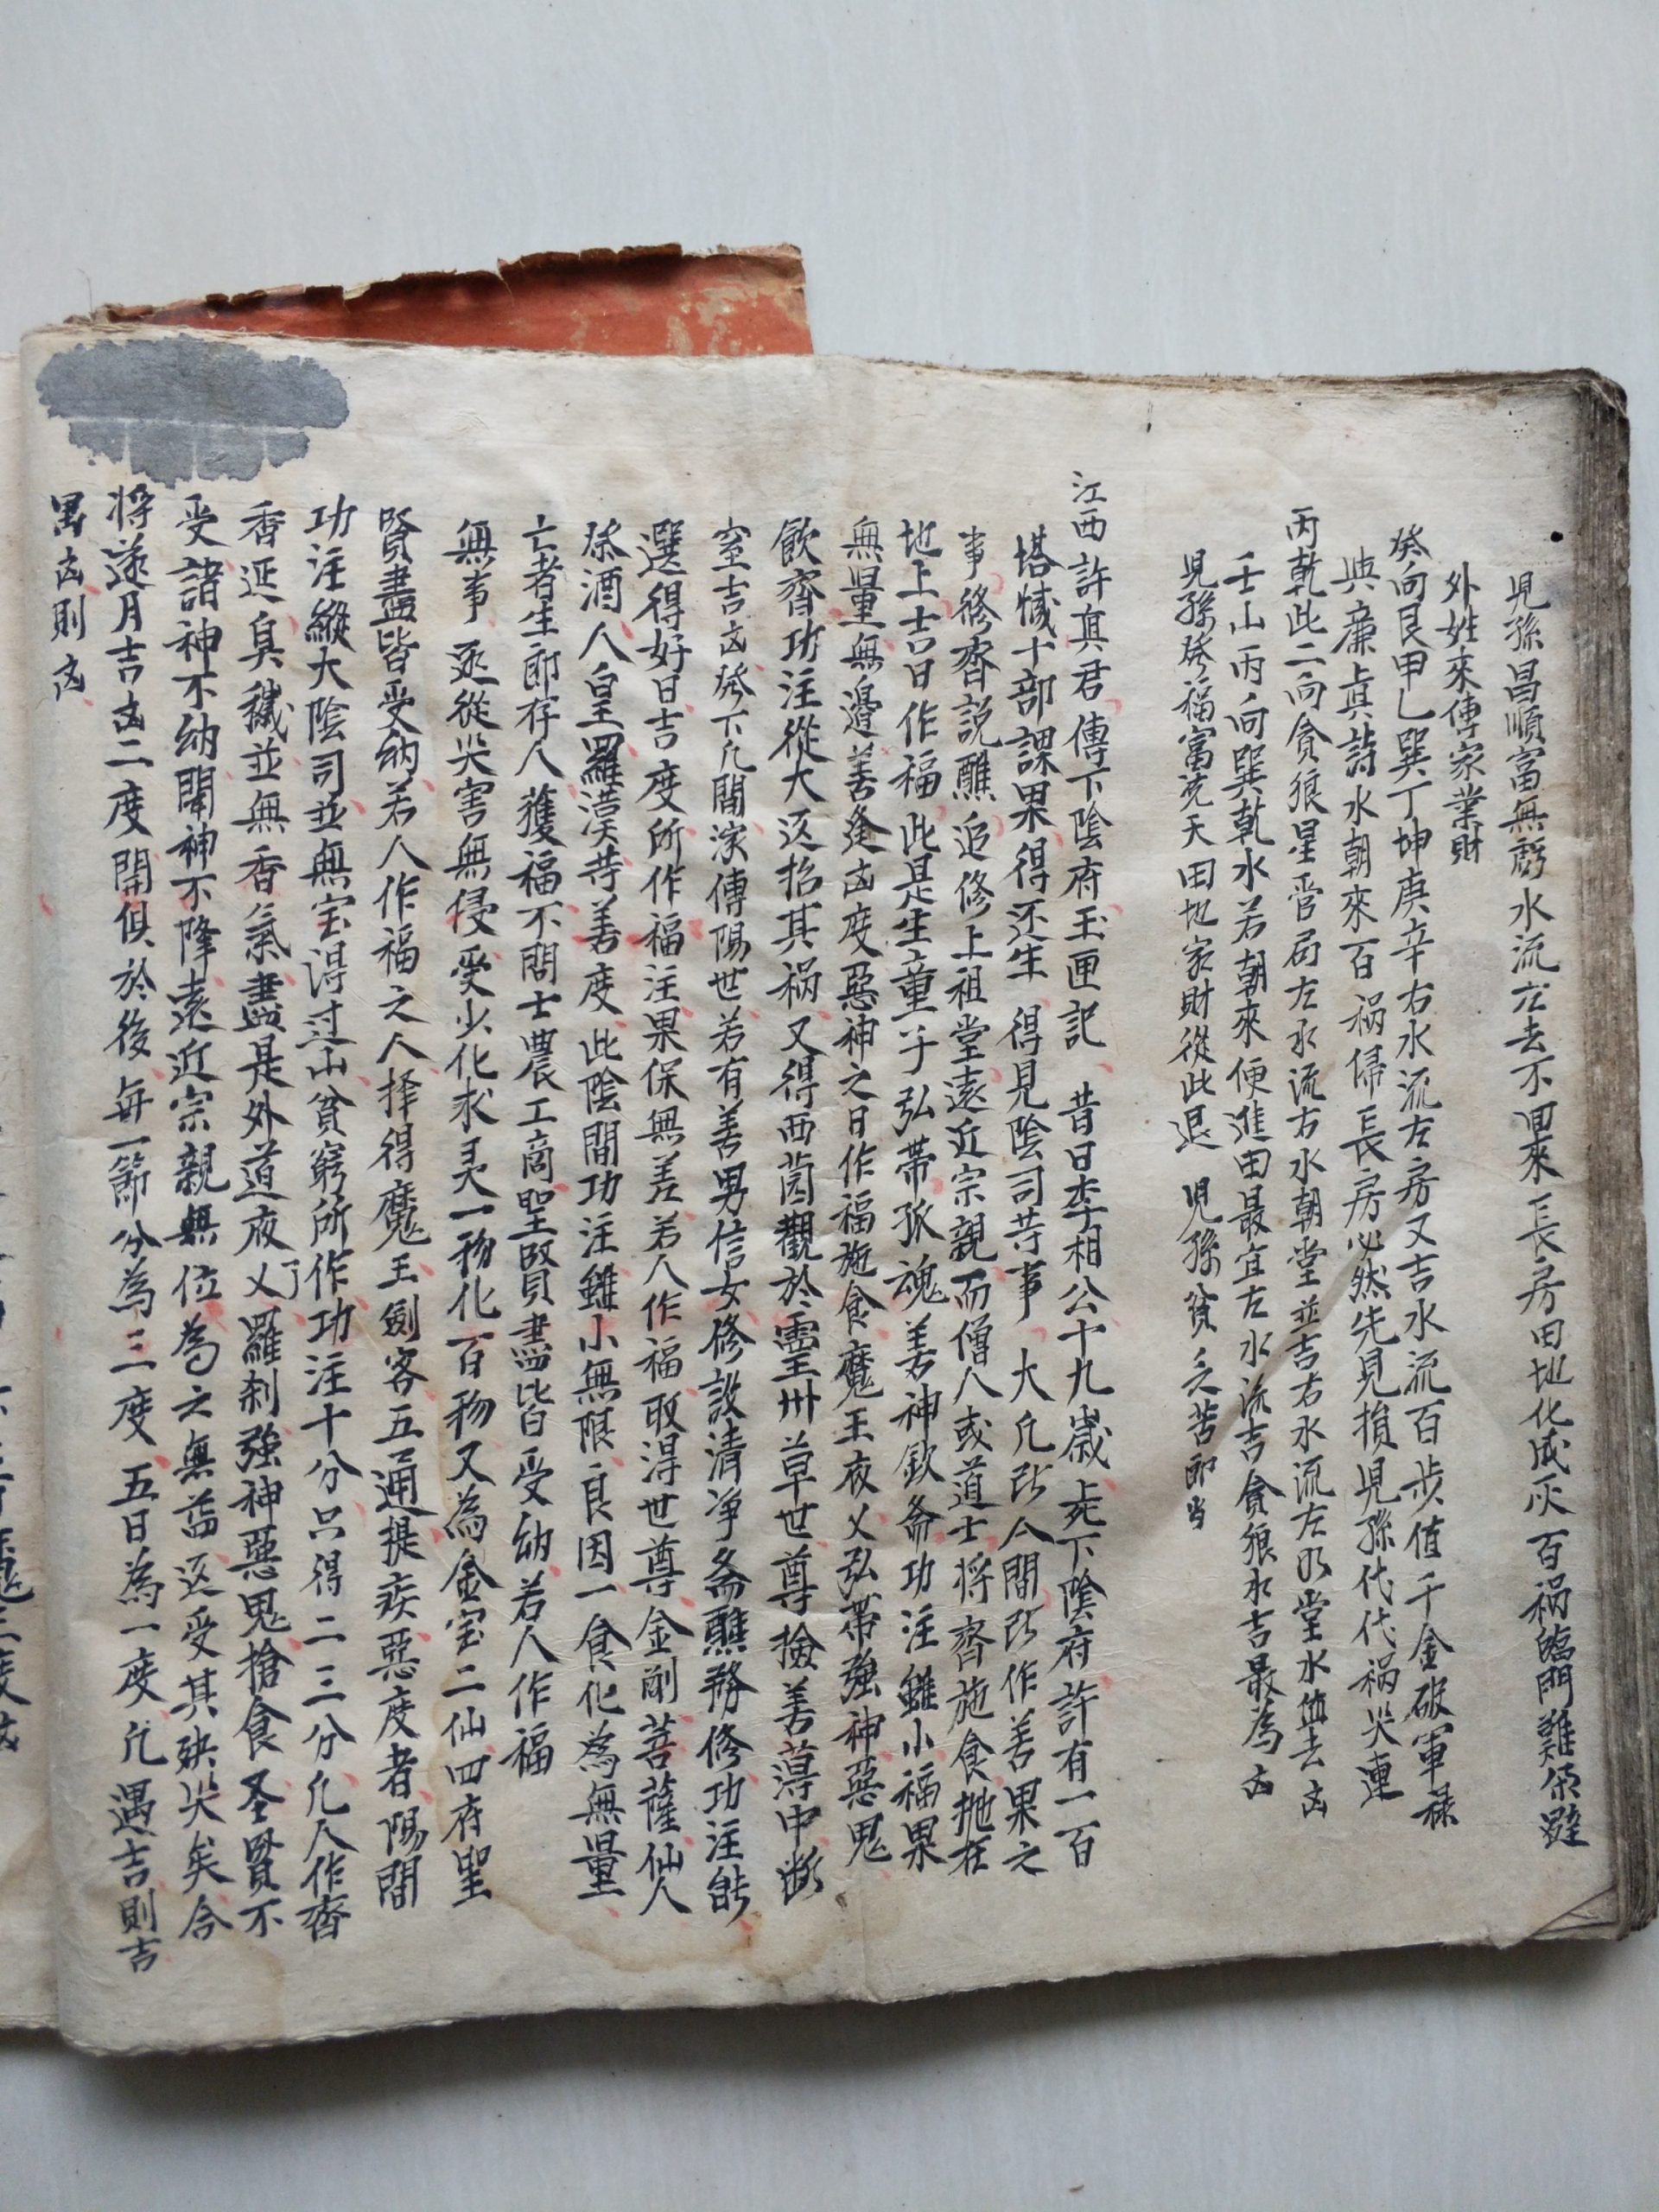 兒孫昌順富無虧水流左去不囬來長房田地化成灰百祸臨門難躲避
外姓來傳家業財
癸向艮甲乙巽丁坤庚辛右水流左房又吉水流百步值千金破軍祿
與廉眞諸水朝來百祸歸長房必然先見損兒孫代代祸災連
丙乾此二向貪狼星管局左水流右水朝堂並吉右水流左明堂水直去凶
壬山丙向巽乾水若朝來便進田最宜左水流吉貪狼水吉最為凶
兒孫發福富從天田地家財從此退兒孫貧乏苦即当
江西許真君傳下陰府玉匣記 昔日李相公十九歲死下陰府許有一百
塔懴十部課果得还生 得見陰司䒭事 大凡所人間所作善果之
事修齊說醮追修上祖堂遠近宗親而僧人或道士将齊施食抛在
地上吉日作福此是生童子弘帶孤魂善神欽斋功注雖小福果
無量無邊善逢凶度惡神之日作福施食魔王夜乂弘帶強神惡鬼
飲齊功注從大返招其祸又得西茵觀於靈州草世尊撿善薄中断
定吉凶發下凡間流傳陽世若有善男信女修設清净斋醮務修功注能
選得好日吉度所作福注果保無差若人作福取得世尊金剛菩薩仙人
祭酒人皇羅漢䒭善度此陰間功注雖小無限良因一食化為無量
亡者生即存人獲福不問士農工商聖賢盡皆受納若人作福
無事 返從災害無侵受少化求灵一物化百物又為金宝二仙四府聖
賢盡皆受納若人作福之人择得魔王劍客五通提疾惡度者陽間
功注縱大陰司並無宝得过山貧窮所作功注十分只得二三分凡人作齊
香延臭穢並無香氣盡是外道夜乂羅刹強神惡鬼搶食圣賢不
受諸神不納閙神不降遠近宗親無位為之無益返受其殃災矣合
将逐月吉凶二度開俱於後每一節分為三度五日為一度凡遇吉則吉
遇凶則凶